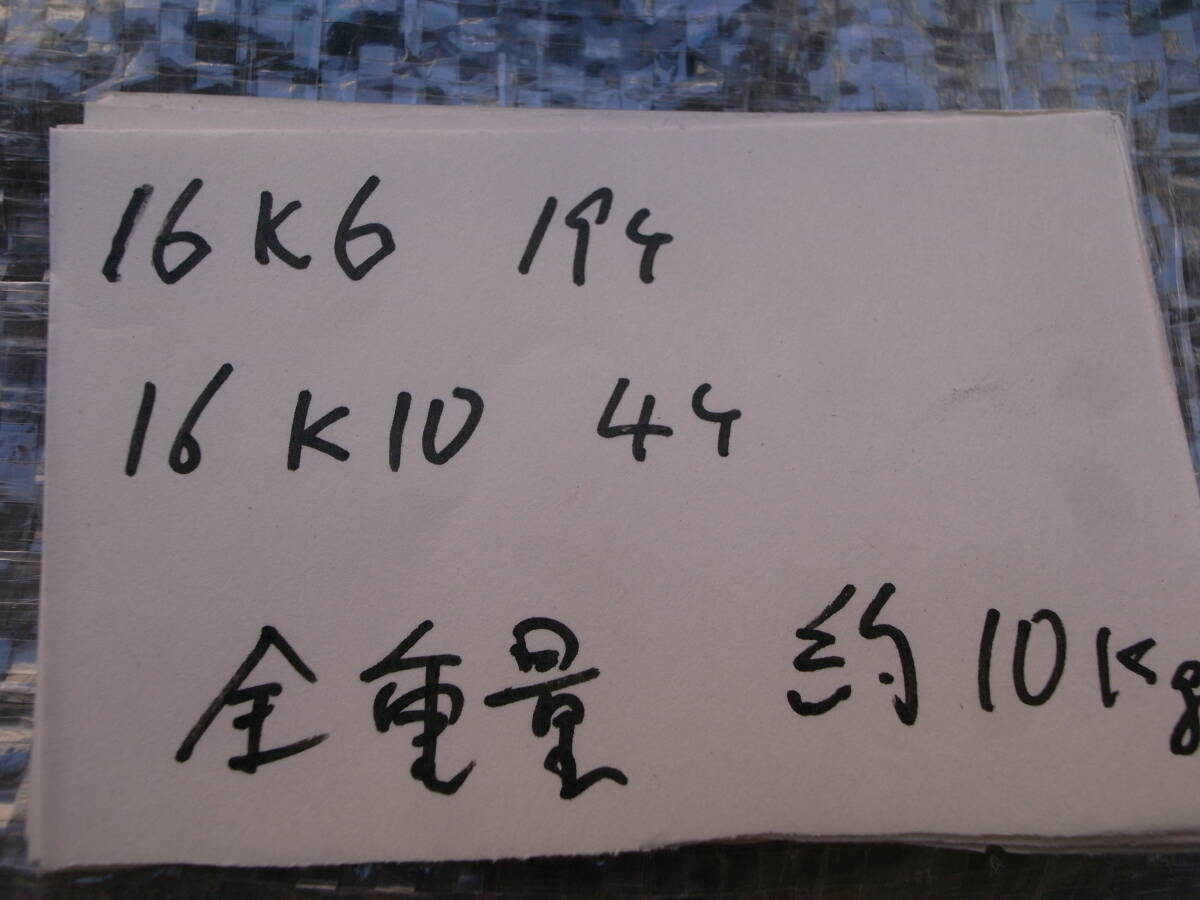 16K6 19ケ
16K10 4ケ
全重量 約10Kg